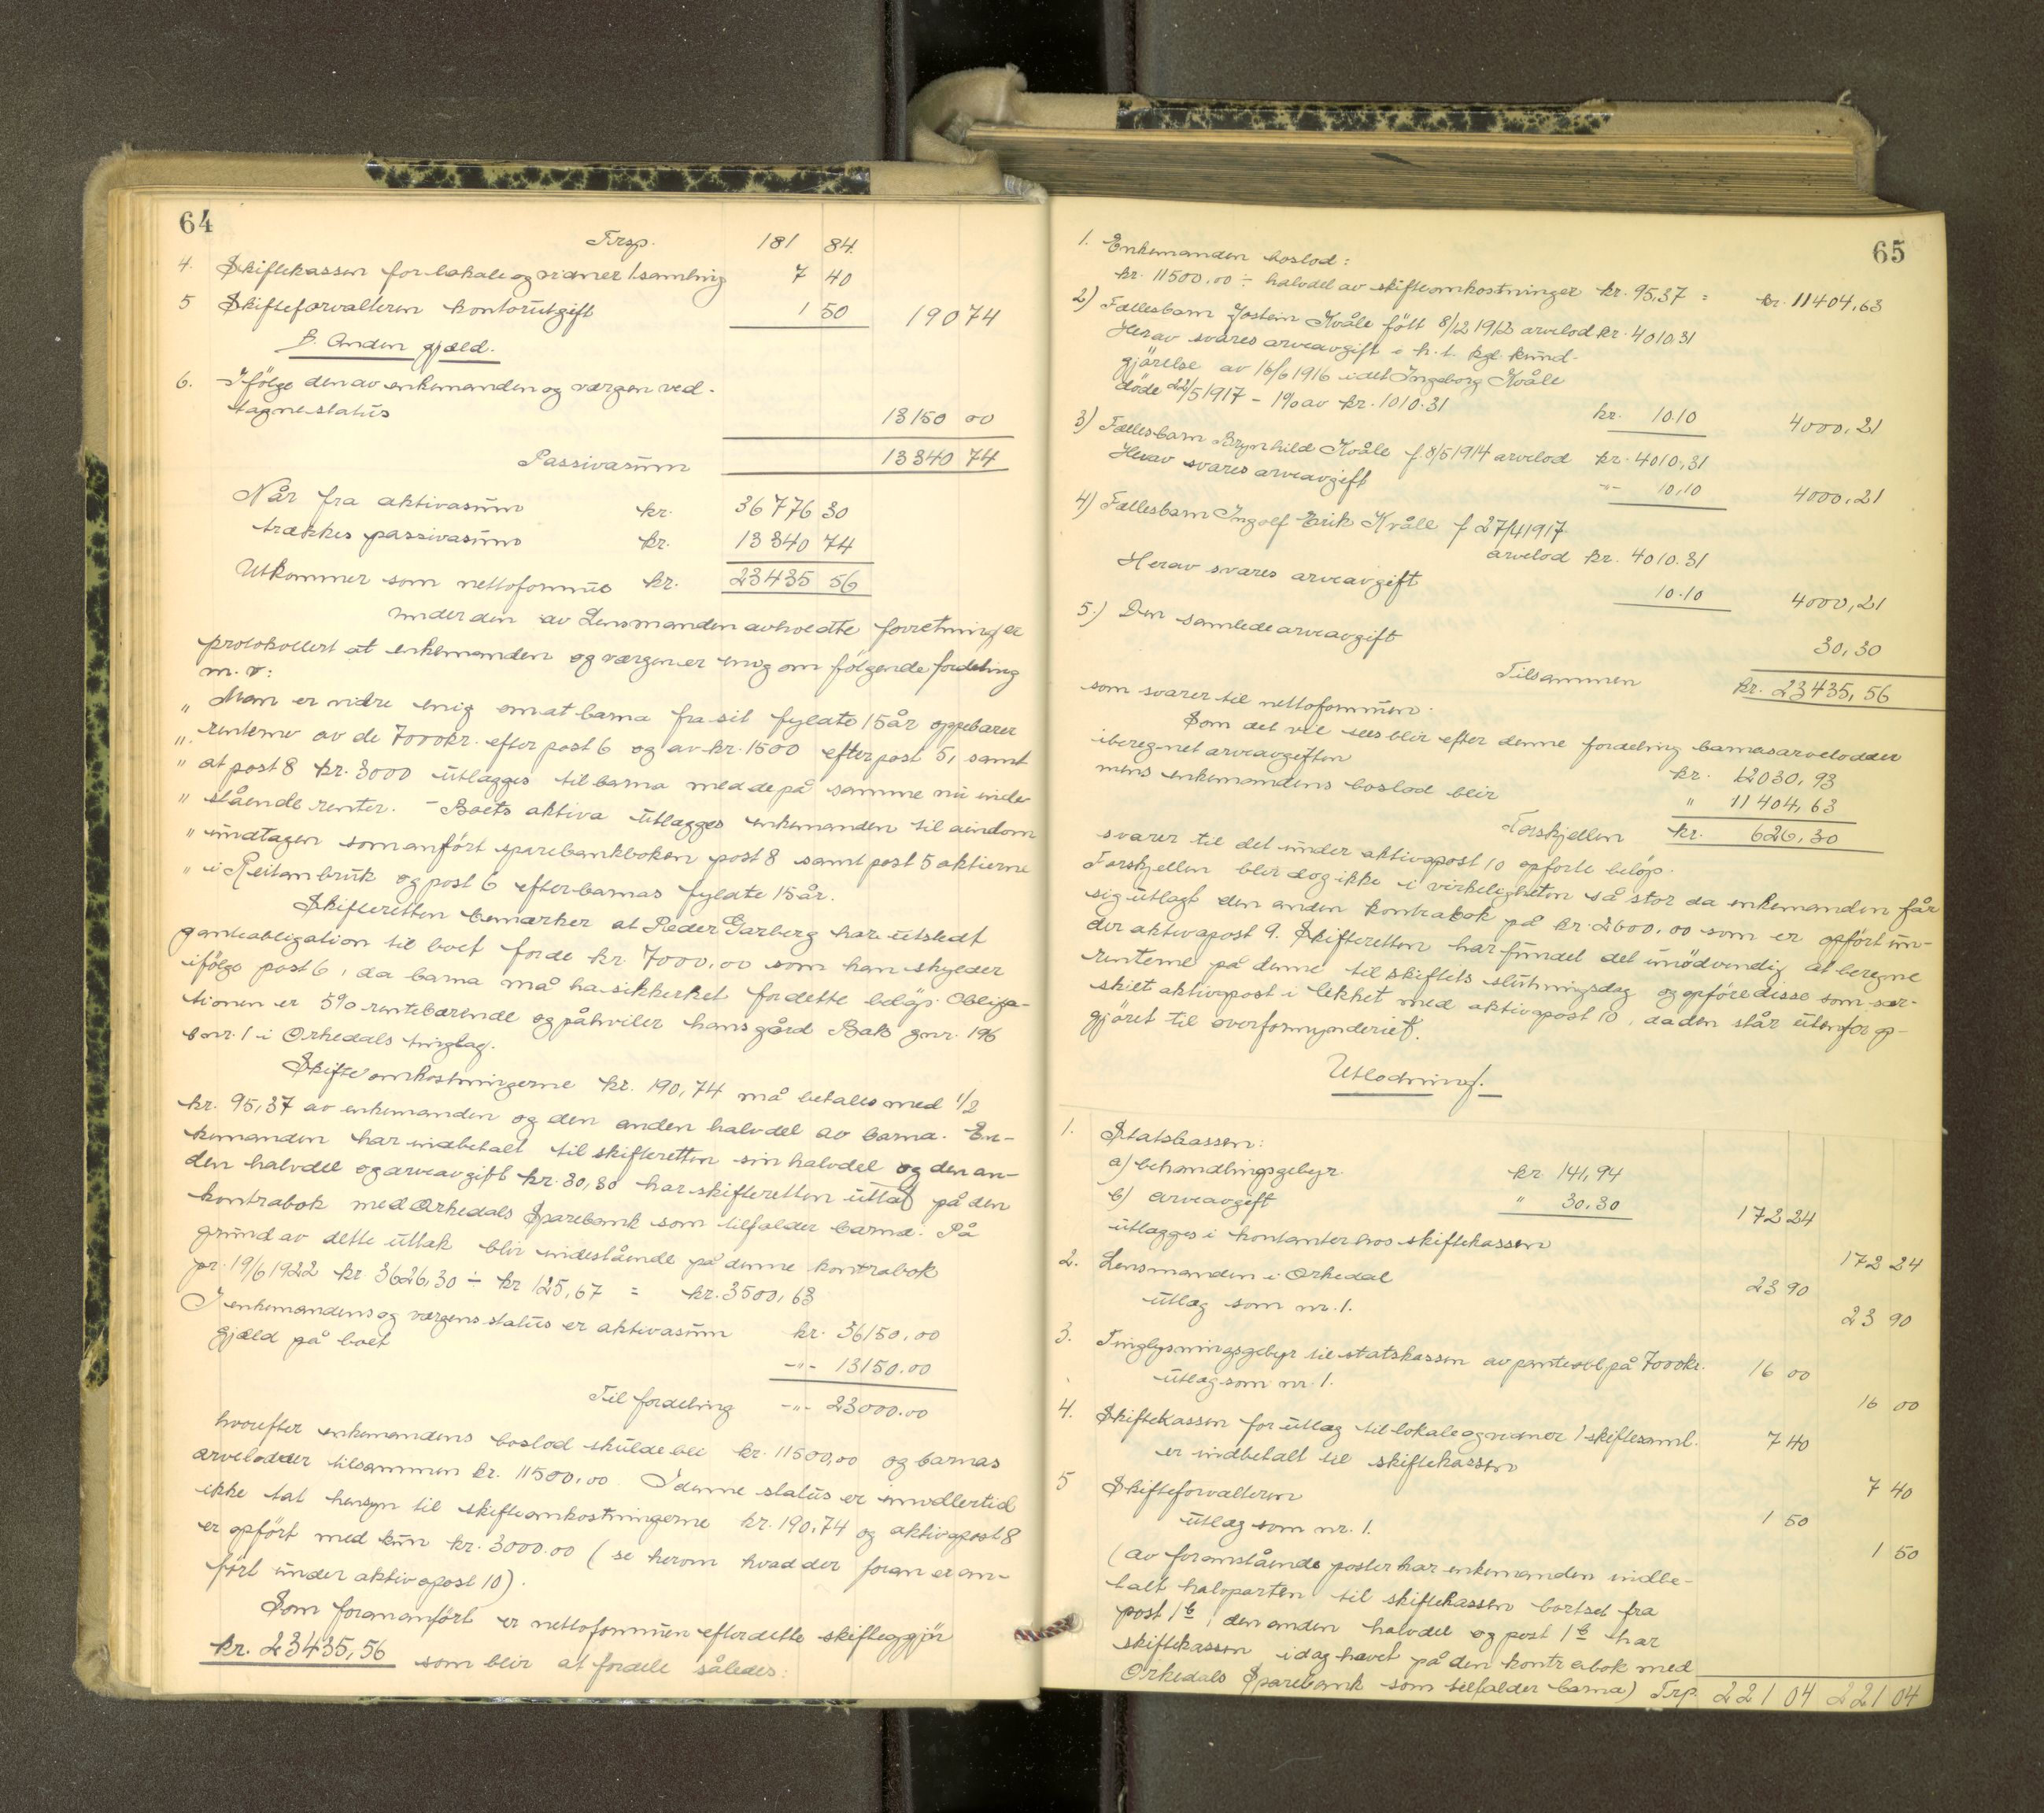 64
Trsp. 181 84.
4. Skiftekassen for lokale og vidner 1 samling 7 40
5 Skifteforvalteren kontorutgift 1 50 190 74
B. Anden gjæld.
6. Ifølge den av enkemanden og værgen ved-
tagne status 13150 00
Passivasum 13340 74
Når fra aktivasum kr. 36776 30
trækkes passivasum kr. 13340 74
Utkommer som nettoformue kr. 23435 56
under den av Lensmanden avholdte forretning er
protokollert at enkemanden og værgen er enig om følgende fordeling
m. v:
" Man er vidre enig om at barna fra sit fyldte 15 år oppebærer
" renterne av de 7000 kr. efter post 6 og av kr. 1500 efter post 5, samt
" at post 8 kr. 3000 utlægges til barna med de på samme nu inde-
" stående renter. – Boets aktiva utlægges enkemanden til eiendom
" undtagen som anført sparebankboken post 8 samt post 5 aktierne
" i Reitan bruk og post 6 efter barnas fyldte 15 år.
Skifteretten bemærker at Peder Garberg har utstedt
panteobligation til boet for de kr 7000,00 som han skylder
ifølge post 6, da barna må ha sikkerhet for dette beløp. Obliga-
tionen er 5% rentebærende og påhviler hans gård Bak gnr. 196
bnr. 1 i Orkedals tinglag.
Skifteomkostningerne kr. 190,74 må betales med 1/2
kr. 95,37 av enkemanden og den anden halvdel av barna. En-
kemanden har indbetalt til skifteretten sin halvdel og den an-
den halvdel og arveavgift kr. 30,30 har skifteretten uttat på den
kontrabok med Orkedals Sparebank som tilfalder barna. På
grund av dette uttak blir indestående på denne kontrabok
pr. 19/6 1922 kr. 3626,30 ÷ kr 125,67 = kr. 3500,63
I enkemandens og værgens status er aktivasum kr. 36150,00
Gjæld på boet -"- 13150.00
Til fordeling -"- 23000.00
hvorefter enkemandens boslod skulde bli kr. 11500,00 og barnas
arvelodder tilsammen kr. 11500,00. I denne status er imidlertid
ikke tat hensyn til skifteomkostningerne kr. 190,74 og aktivapost 8
er opført med kun kr. 3000.00 (se herom hvad der foran er an-
ført under aktivapost 10).
Som foran anført er nettoformuen efter dette skifteopgjør
kr. 23435,56 som blir at fordele således:
65
1. Enkemanden boslod:
kr. 11500,00 ÷ halvdel av skifteomkostninger kr. 95,37 = kr. 11404,63
2) Fællesbarn Jostein Kvåle født 8/12 1912 arvelod kr. 4010.31
Herav svares arveavgift i h. t. kgl. kund-
gjørelse av 16/6 1916 idet Ingeborg Kvåle
døde 22/5 1917 – 1% av kr. 1010.31 kr. 10.10 4000,21
3) Fællesbarn Brynhild Kvåle f. 8/5 1914 arvelod kr. 4010,31
Herav svares arveavgift -"- 10,10 4000,21
4) Fællesbarn Ingolf Erik Kvåle f 27/4 1917
arvelod kr. 4010.31
Herav svares arveavgift 10.10 4000,21
5.) Den samlede arveavgift 30,30
Tilsammen kr. 23435,56
som svarer til nettoformuen.
Som det vil sees blir efter denne fordeling barnas arvelodder
iberegnet arveavgiften kr. 12030,93
mens enkemandens boslod blir " 11404,63
Forskjellen kr. 626,30
svarer til det under aktivapost 10 opførte beløp.
Forskjellen blir dog ikke i virkeligheten så stor da enkemanden får
sig utlagt den anden kontrabok på kr. 2600,00 som er opført un-
der aktivapost 9. Skifteretten har fundet det unødvendig at beregne
renterne på denne til skiftets slutningsdag og opføre disse som sær-
skilt aktivapost i likhet med aktivapost 10, da den står utenfor op-
gjøret til overformynderiet.
Utlodning.
1. Statskassen:
a) behandlingsgebyr kr 141,94
b) arveavgift " 30.30 172 24
utlægges i kontanter hos skiftekassen 172 24
2. Lensmanden i Orkedal 23 90
utlæg som nr. 1. 23 90
3. Tinglysningsgebyr til statskassen av panteobl på 7000 kr. 16 00
utlæg som nr. 1. 16 00
4. Skiftekassen for utlæg til lokale og vidner 1 skiftesaml. 7 40
er indbetalt til skiftekassen 7 40
5 Skifteforvalteren 1 50
utlæg som nr. 1. 1 50
(av foranstående poster har enkemanden indbe-
talt halvparten til skiftekassen bortset fra
post 1 b, den anden halvdel og post 1 b har
skiftekassen idag hævet på den kontrabok med
Orkedals Sparebank som tilfalder barna) Trp. 221 04 221 04